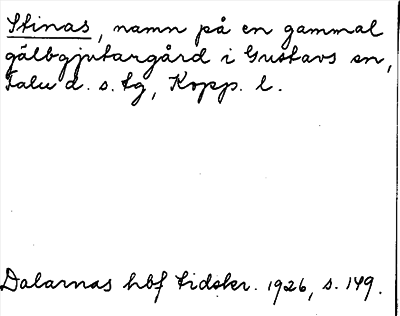 Stinas, namn på en gammal
gälbgjutargård i Gustavs sn,
Falu d. s. tg, Kopp. l.
Dalarnas hbf tidskr. 1926, s. 149.